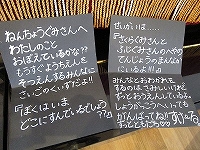 ねんちょうぐみさんへ
わたしのこと
おぼえているかな??
もうすぐようちえんを
そつえんするみんなに
さいごのくいずだよ!
『ぼくはいま
どこにすんでいるでしょう??』
せいかいは……
『さくらぐみさんと
ふじぐみさんのへやの
てんじょうのまんなか
にいるよ!!!』
みんなとおわかれを
するのはさみしいけど
ずっとおうえんしているよ。
しょうがっこうへいっても
がんばってね!!
ずっとともだち